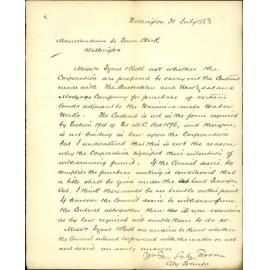 Wellington 30 July 1883
Memorandum to Town Clerk
Wellington
Messrs Izard & Bell ask whether the
Corporation are prepared to carry out the Contract
made with the Australian and New Zealand
Mortgage Company for purchase of certain
lands adjacent to the Wainuiomata Water
Works. The Contract is not in the form required
by Section 194 of the M.C. Act 1876, and therefore,
is not binding in law upon the Corporation
but I understand that this is not the reason
why the Corporation signified their intention of
withdrawing from it. If the Council desire to
complete the purchase making it conditional that
a title shall be given under the Land Transfer
Act, I think there would be no trouble
If however the Council desire to withdraw from
the Contract altogether then in
as by law required will enable them to do so.
Messrs Izard & Bell are anxious to know whether
the Council intend to proceed with the matter or not
and desire an early answer
City Solicitor